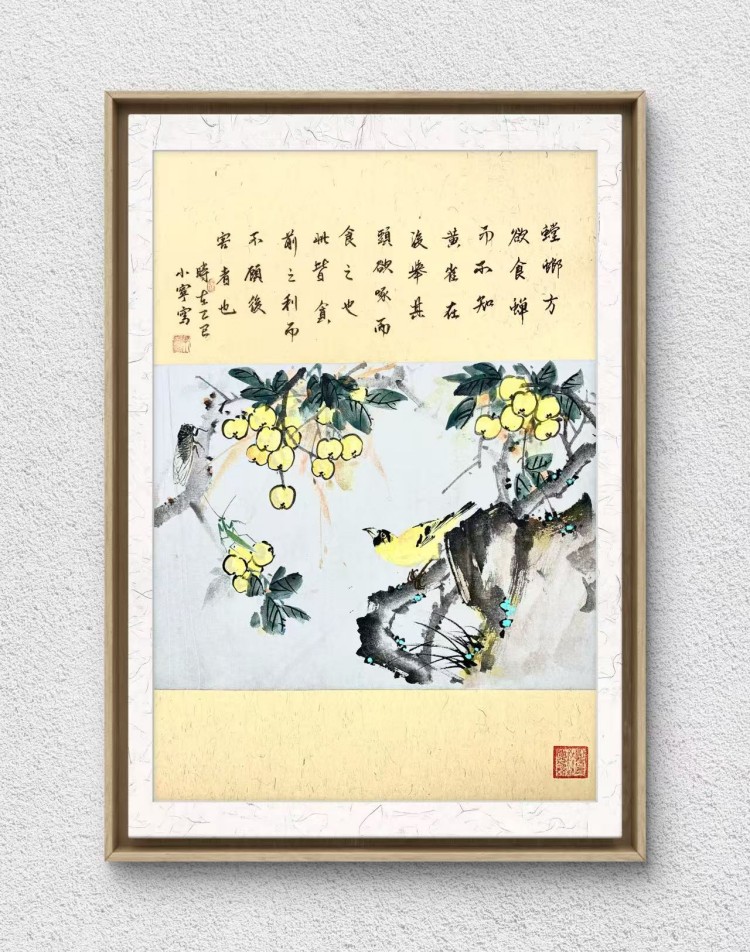 螳螂方
欲食蝉
而不知
黄雀在
後舉其
頭欲啄而
食之也
此皆貪
前之利而
不顧後
害者也
時在乙巳
小寧寫